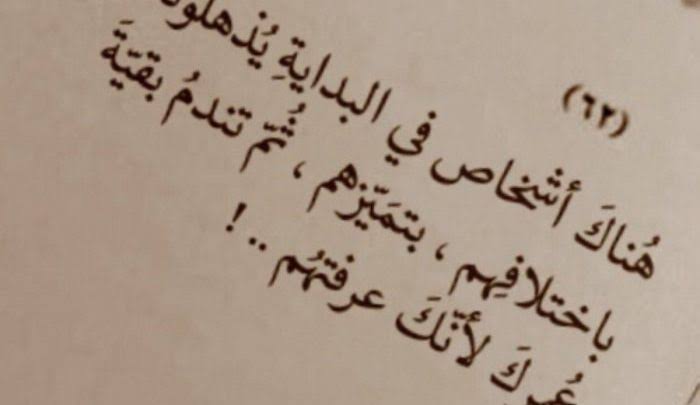 (٦٢)
هُناكَ أشخاص في البدايةِ يُذهلو
باختلافِهم ، بتمَيّزهم ، ثُمّ تندمُ بقيّةَ
عُمركَ لأنّكَ عرفتهُم ..!